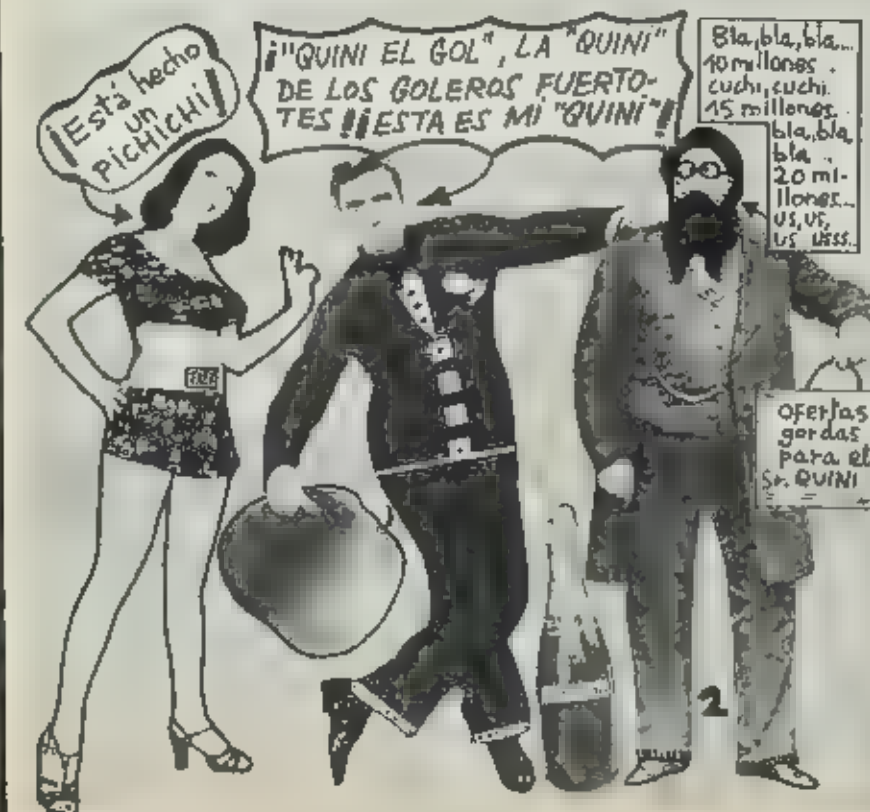 ¡Está hecho
un
PICHICHI!
¡"QUINI EL GOL", LA "QUINI"
DE LOS GOLEROS FUERTO-
TES !¡ESTA ES MI "QUINI"!
Bla, bla, bla...
10 millones.
cuchi, cuchi.
15 millones.
bla, bla
bla..
20 mi-
llones...
us, us,
us usss...
Ofertas
gordas
para el
Sr. QUINI
2